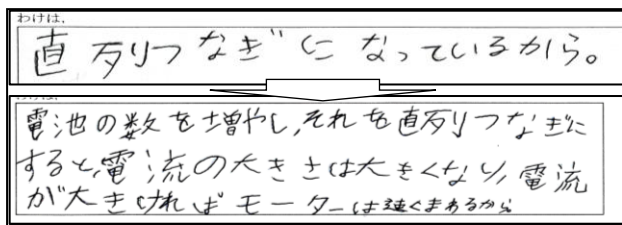 わけは、
直列つなぎになっているから。
わけは、
電池の数を増やし、それを直列つなぎに
すると、電流の大きさは大きくなり、電流
が大きければモーターは速くまわるから